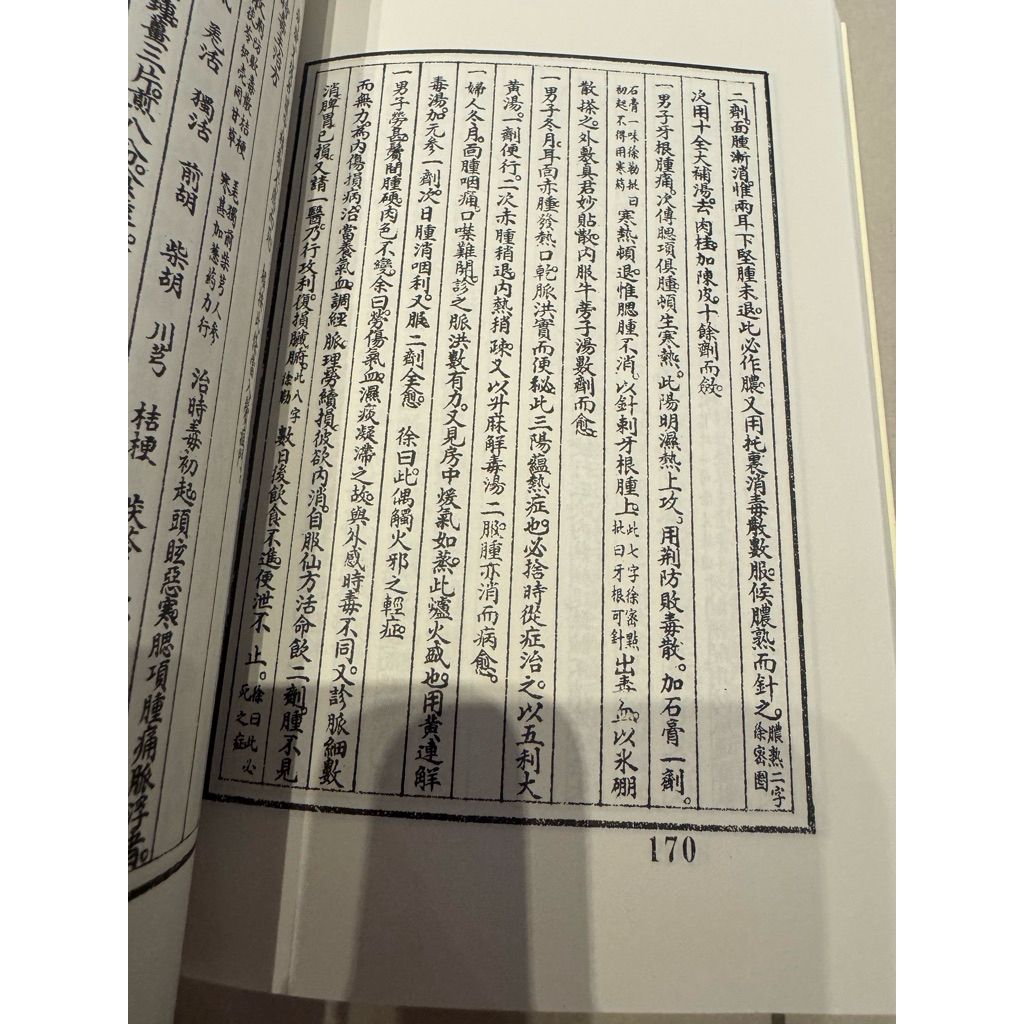 二劑。面腫漸消。惟兩耳下堅腫未退。此必作膿。又用托裏消毒散數服。候膿熟而針之。膿熱二字徐密圈
次用十全大補湯。去肉桂。加陳皮。十餘劑而斂。
一男子牙根腫痛。次傳腮項俱腫。頓生寒熱。此陽明濕熱上攻。用荆防敗毒散。加石膏一劑。
石膏一味徐勒批曰初起不得用寒药寒熱頓退。惟腮腫不消。以針刺牙根腫上。此七字徐密點批曰牙根可針出毒血。以氷硼
散搽之。外敷真君妙貼散。内服牛旁子湯數劑而愈。
一男子冬月。耳面赤腫發熱口乾。脈洪實而便秘。此三陽蘊熱症也。必捨時從症治之。以五利大
黃湯。一劑便行。二次赤腫稍退。内熱稍疎。又以升麻解毒湯二服。腫亦消而病愈。
一婦人冬月。面腫咽痛。口噤難開。診之脈洪數有力。又見房中煖氣如蒸。此爐火盛也。用黄連解
毒湯。加元參一劑。次日腫消咽利。又服二劑全愈。徐曰此偶觸火邪之輕症。
一男子勞甚。鬢間腫硬。肉色不變。余曰。勞傷氣血。濕痰凝滯之故。與外感時毒不同。又診脈細數
而無力。為内傷損病。治當養氣血。調經脈。理勞續損。彼欲内消。自服仙方活命飲二劑。腫不見
消。脾胃已損。又請一醫。乃行攻利。復損臟腑。此八字徐勒數日後飲食不進。便泄不止。徐曰此必死之症
治時毒初起。頭眩惡寒。腮項腫痛。脈浮者。
羌活 獨活 前胡 柴胡 川芎 桔梗
薑三片。煎八分。